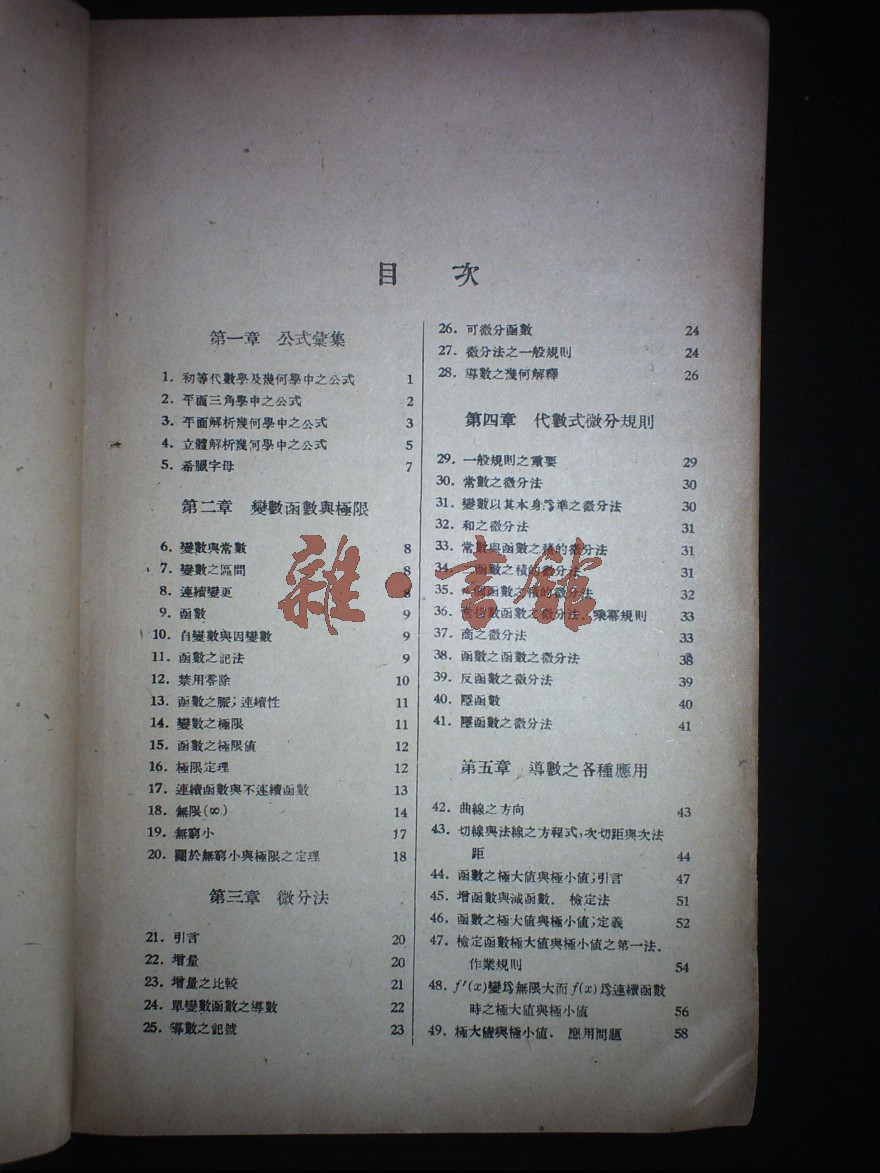 目 次
第一章 公式彙集
1. 初等代數學及幾何學中之公式 1
2. 平面三角學中之公式 2
3. 平面解析幾何學中之公式 3
4. 立體解析幾何學中之公式 5
5. 希臘字母 7
第二章 變數函數與極限
6. 變數與常數 8
7. 變數之區間 8
8. 連續變更 8
9. 函數 9
10. 自變數與因變數 9
11. 函數之記法 9
12. 禁用零除 10
13. 函數之脈;連續性 11
14. 變數之極限 11
15. 函數之極限值 12
16. 極限定理 12
17. 連續函數與不連續函數 13
18. 無限(∞) 14
19. 無窮小 17
20. 關於無窮小與極限之定理 18
第三章 微分法
21. 引言 20
22. 增量 20
23. 增量之比較 21
24. 單變數函數之導數 22
25. 導數之記號 23
26. 可微分函數 24
27. 微分法之一般規則 24
28. 導數之幾何解釋 26
第四章 代數式微分規則
29. 一般規則之重要 29
30. 常數之微分法 30
31. 變數以其本身為準之微分法 30
32. 和之微分法 31
33. 常數與函數之積的微分法 31
34. 函數之積的微分法 31
35. 個函數之積的微分法 32
36. 常指數函數之微分法.乘冪規則 33
37. 商之微分法 33
38. 函數之函數之微分法 38
39. 反函數之微分法 39
40. 隱函數 40
41. 隱函數之微分法 41
第五章 導數之各種應用
42. 曲線之方向 43
43. 切線與法線之方程式,次切距與次法
距 44
44. 函數之極大值與極小值;引言 47
45. 增函數與減函數. 檢定法 51
46. 函數之極大值與極小值;定義 52
47. 檢定函數極大值與極小值之第一法.
作業規則 54
48. f′(x)變爲無限大而f(x)爲連續函數
時之極大值與極小值 56
49. 極大值與極小值. 應用問題 58
雜·書館